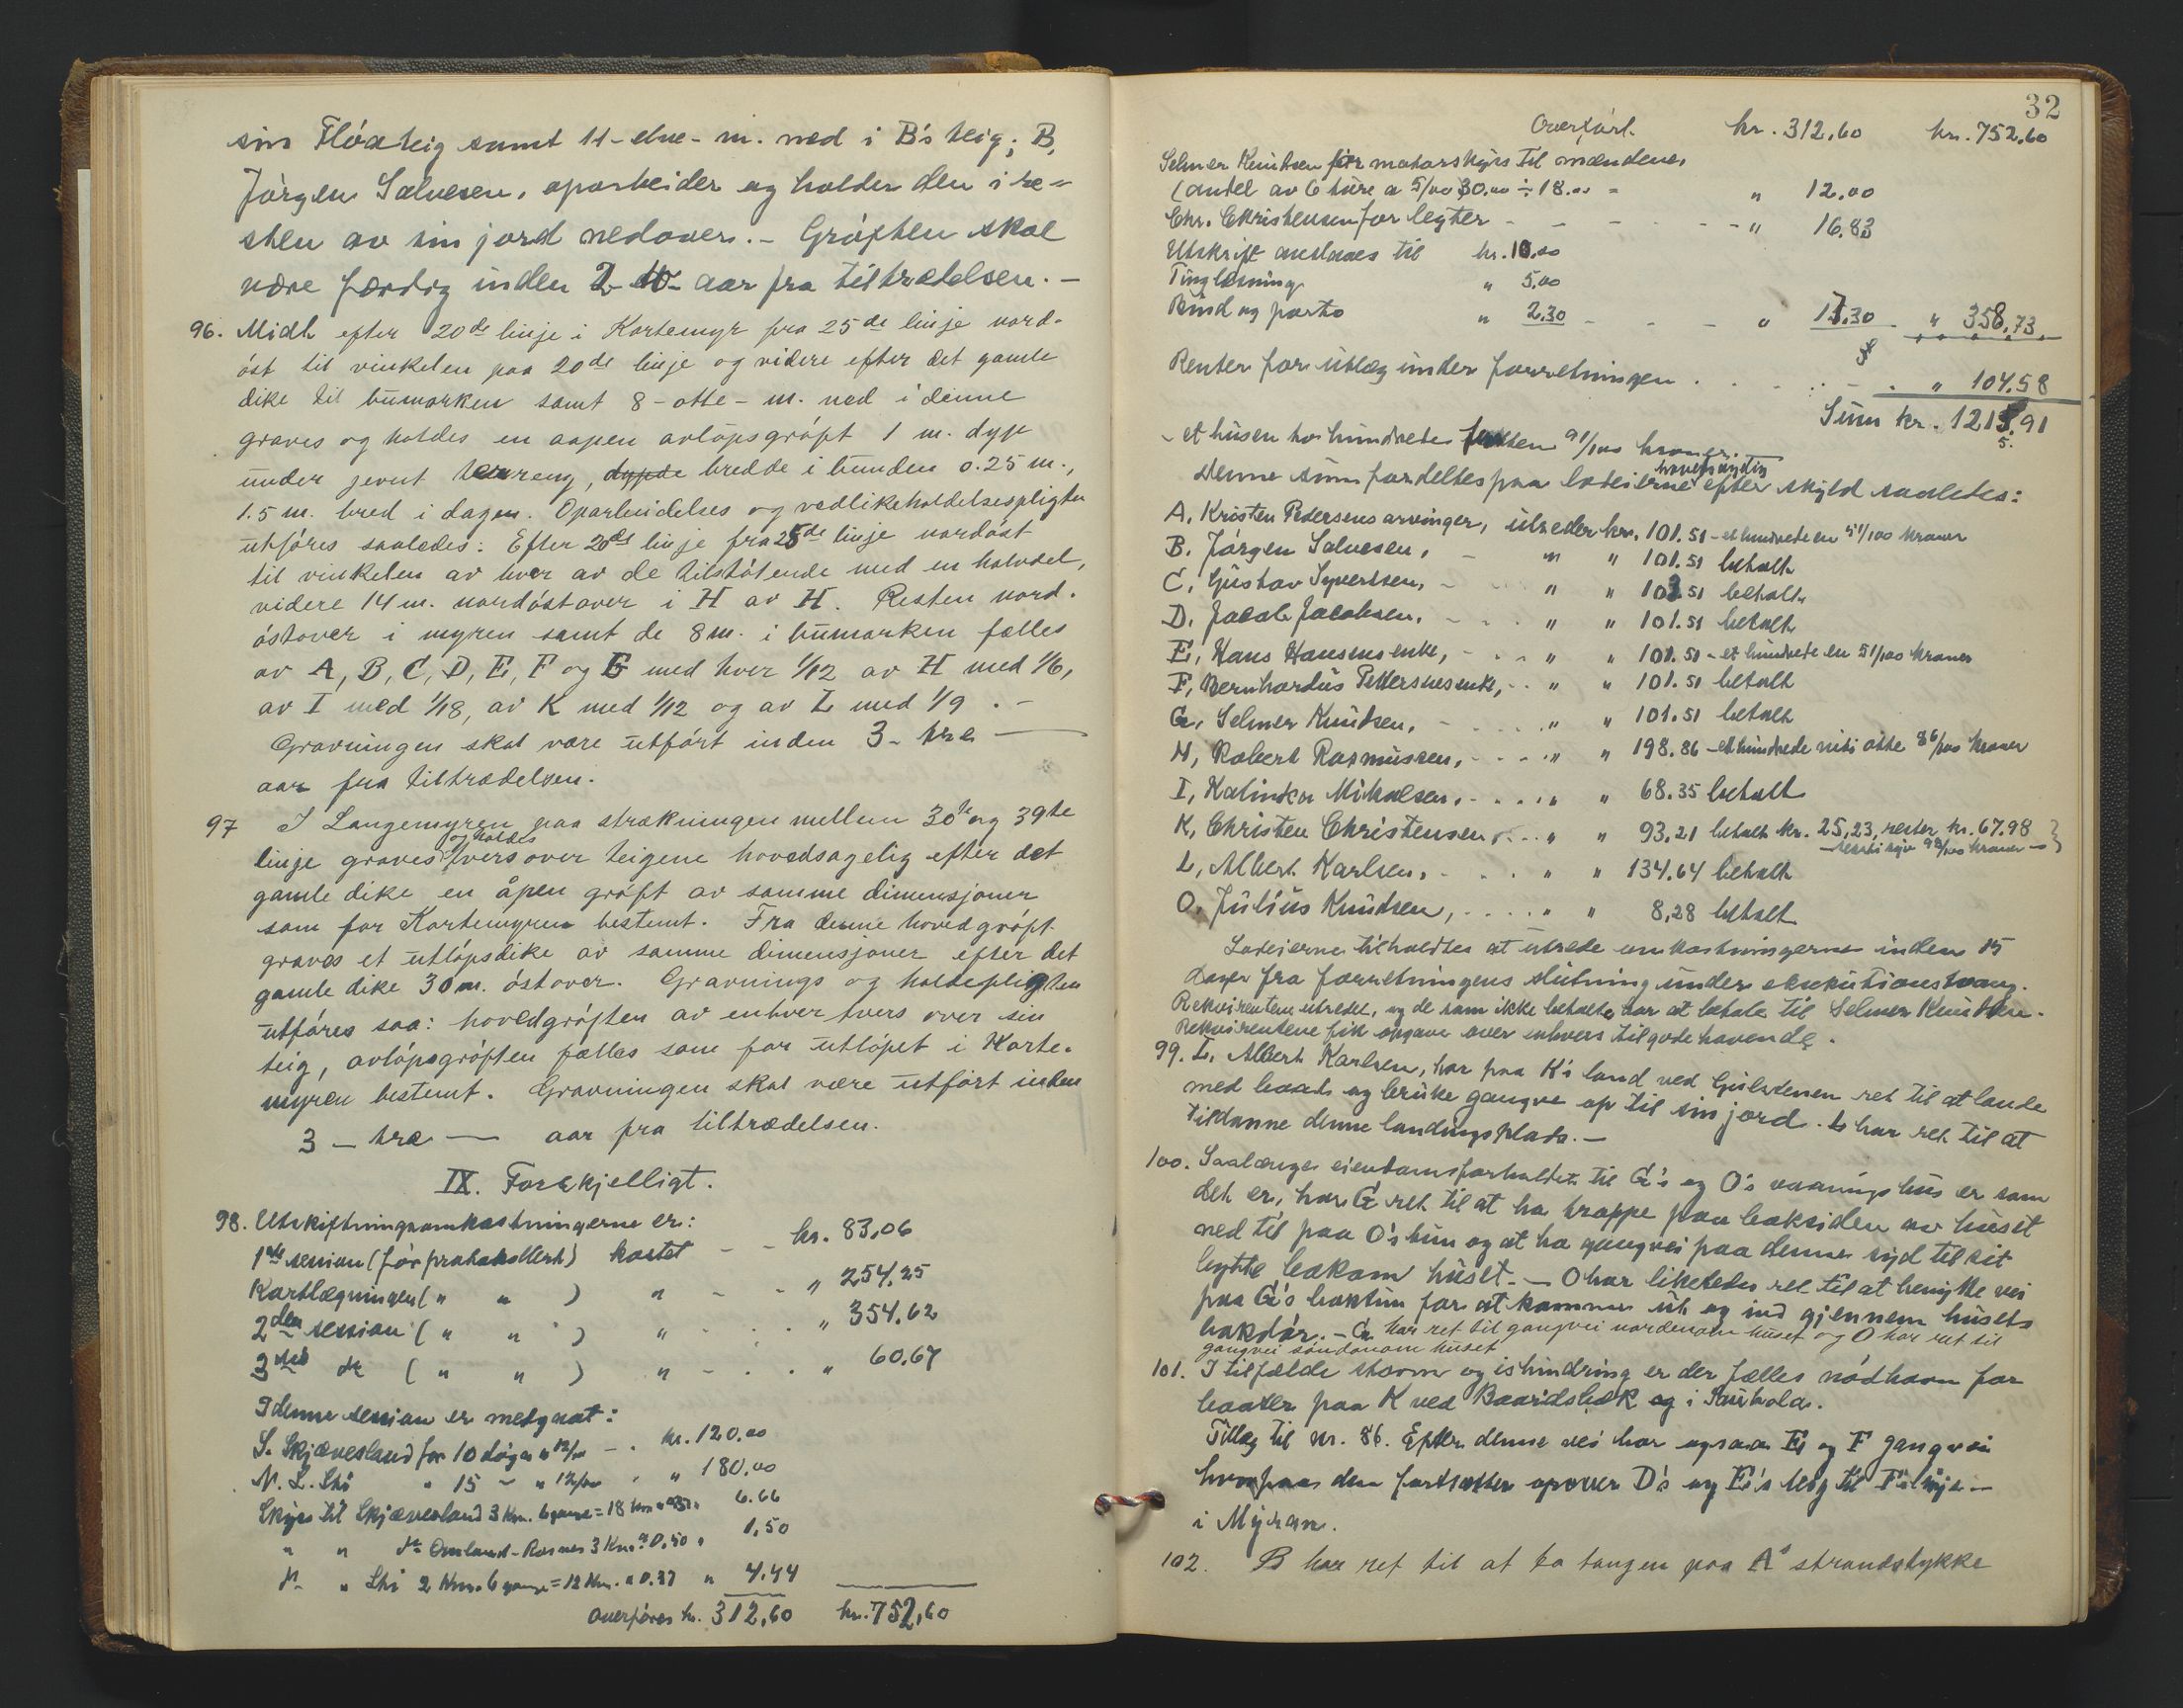 sin Flöateig samt 11-elve- m. ned i B's teig; B,
Jörgen Salvesen, oparbeider og holder den i re-
sten av sin jord nedover. - Gröften skal
være færdig inden 2 to aar fra tiltrædelsen. -
96. Midt efter 20de linje i Kortemyr fra 25de linje nord-
öst til vinkelen paa 20de linje og videre efter det gamle
dike til bumarken samt 8 - otte - m. ned i denne
graves og holdes en aapen avlöpsgröft 1 m. dyp
under jevnt terræng, dypde bredde i bunden 0.25 m.,
1.5 m. bred i dagen. Oparbeidelses og vedlikeholdelsespligten
utföres saaledes: Efter 20de linje fra 25de linje nordöst
til vinkelen av hver av de tilstötende med en halvdel,
videre 14 m. nordöstover i H av H. Resten nord-
östover i myren samt de 8 m. i bumarken fælles
av A, B, C, D, E, F og G med hver 1/12 av H med 1/6,
av I med 1/18, av K med 1/12 og av L med 1/9. -
Gravningen skal være utfört inden 3 - tre -
aar fra tiltrædelsen.
97 I Langemyren paa strækningen mellem 30te og 39te
linje graves og holdes tvers over teigene hovedsagelig efter det
gamle dike en åpen gröft av samme dimensjoner
som for Kortemyren bestemt. Fra denne hovedgröft
graves et utlöpsdike av samme dimensjoner efter det
gamle dike 30 m. östover. Gravnings og holdepligten
utföres saa: hovedgröften av enhver tvers over sin
teig, avlöpsgröften fælles som for utlöpet i Korte-
myren bestemt. Gravningen skal være utfört inden
3 - tre - aar fra tiltrædelsen.
IX. Forskjelligt.
98. Utskiftningsomkostningerne er:
1ste session (för protokollert) kostet - - kr. 83,06
Kartlægningen ( " " ) " - - " 254,25
2den session ( " " ) " - - " 354,62
3die do ( " " ) " - - " 60,67
I denne session er medgaat:
S. Skjævesland for 10 döger a 12/00 - - kr. 120,00
N. L. Shi " 15 - " 12/00 " " 180,00
Skyss til Skjævesland 3 Km. 6 gange = 18 Km a 0.37 " 6.66
" " do Omland - Rosnes 3 Km. a 0,50 " 1,50
do " Shi 2 Km. 6 gange = 12 Km. a 0.37 " 4.44
overföres kr. 312,60 kr. 752,60
32
Overfört. kr. 312,60 kr. 752,60
Selmer Knudsen for motorskyss til mændene,
(andel av 6 ture a 5/00 30.00 ÷ 18.00 - " 12.00
Chr. Christensen for legter - - - - " 16.83
Utskrift anslaaes til kr. 10,00
Tinglæsning " 5,00
Bind og porto " 2.30 - - - " 17.30 " 358,73
Renter for utlæg under forretningen . . . . . " 104.58
Sum kr. 1215,91
- et tusen to hundrede femten 91/100 kroner. -
Denne sum fordeltes paa lodeierne hovedsagelig efter skyld saaledes:
A, Kristen Pedersens arvinger, utreder kr. 101.51 - et hundrede en 51/100 kroner
B, Jörgen Salvesen, - " " 101.51 betalt
C, Gustav Syvertsen, - - " " 101.51 betalt
D, Jacob Jacobsen, - - " " 101.51 betalt
E, Hans Hansens enke, - - " " 101.51 - et hundrede en 51/100 kroner
F, Bernhardus Pettersens enke, - - " " 101.51 betalt
G, Selmer Knudsen, - - " " 101.51 betalt
H, Robert Rasmussen, - - " " 198.86 - et hundrede niti otte 86/100 kroner
I, Kalinka Mikalsen, - - " " 68.35 betalt
K, Christen Christensen, - - " " 93,21 betalt kr. 25,23, rester kr. 67.98
- seksti syv 98/100 kroner -
L, Albert Karlsen, - - " " 134.64 betalt
O. Julius Knudsen, - - " " 8,28 betalt
Lodeierne tilholdtes at utrede omkostningerne inden 15
dager fra forretningens slutning under eksekutionstvang.
Rekvirenten utredet, og de som ikke betalte, har at betale til Selmer Knudsen.
Rekvirentene fik opgave over enhvers tilgodehavende.
99. L, Albert Karlsen, har paa K's land ved Gulstenen ret til at lande
med baad og bruke gangvei op til sin jord. L har ret til at
tildanne denne landingsplads. -
100. Saalænge eiendomsforholdet til G's og O's vaaningshus er som
det er, har G ret til at ha trappe paa baksiden av huset
ned til paa O's tun og at ha gangvei paa dennes syd til sit
bytte bakom huset. - O har likeledes ret til at benytte vei
paa G's baktun for at komme ut og ind gjennem husets
bakdör. - G har ret til gangvei nordenom huset og O har ret til
gangvei söndenom huset
101. I tilfælde storm og ishindring er der fælles nödhavn for
baater paa K ved Baaridsbæk og i Sauhola.
Tillæg til nr. 86. Efter denne vei har ogsaa E og F gangvei
hvorpaa den fortsætter opover D's og E's teig til F's linje -
i Myran.
102. B har ret til at ta tangen paa A's strandstykke